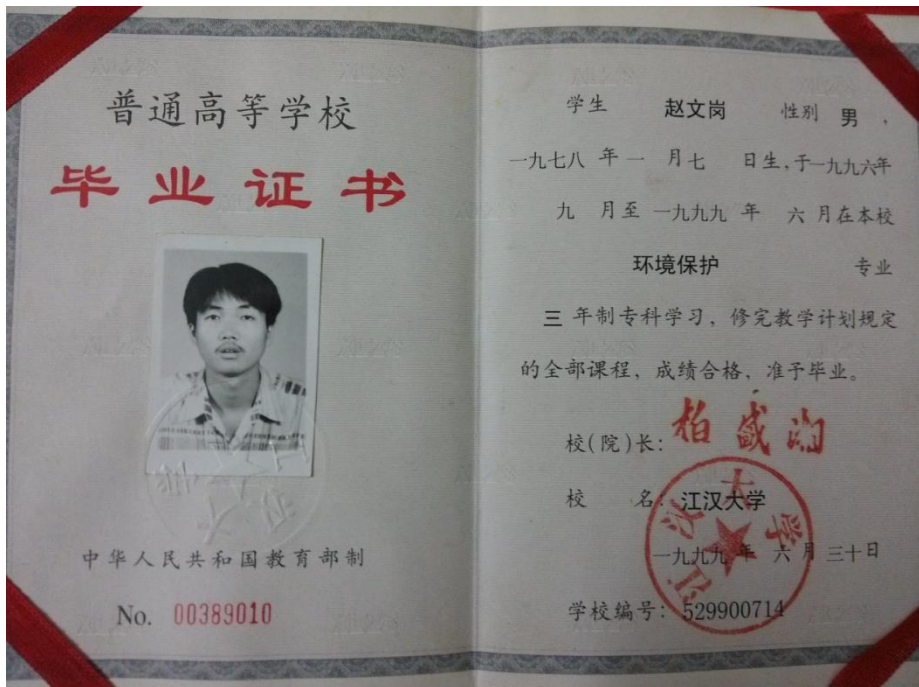 普通高等学校
毕业证书
中华人民共和国教育部制
No. 00389010
学生 赵文岗 性别 男，
一九七八 年 一 月 七 日生，于一九九六年
九 月至 一九九九 年 六 月在本校
环境保护 专业
三 年制专科学习，修完教学计划规定
的全部课程，成绩合格，准予毕业。
校(院)长：柏盛湘
校 名：江汉大学
一九九九 年 六 月 三十日
学校编号：529900714
江汉大学